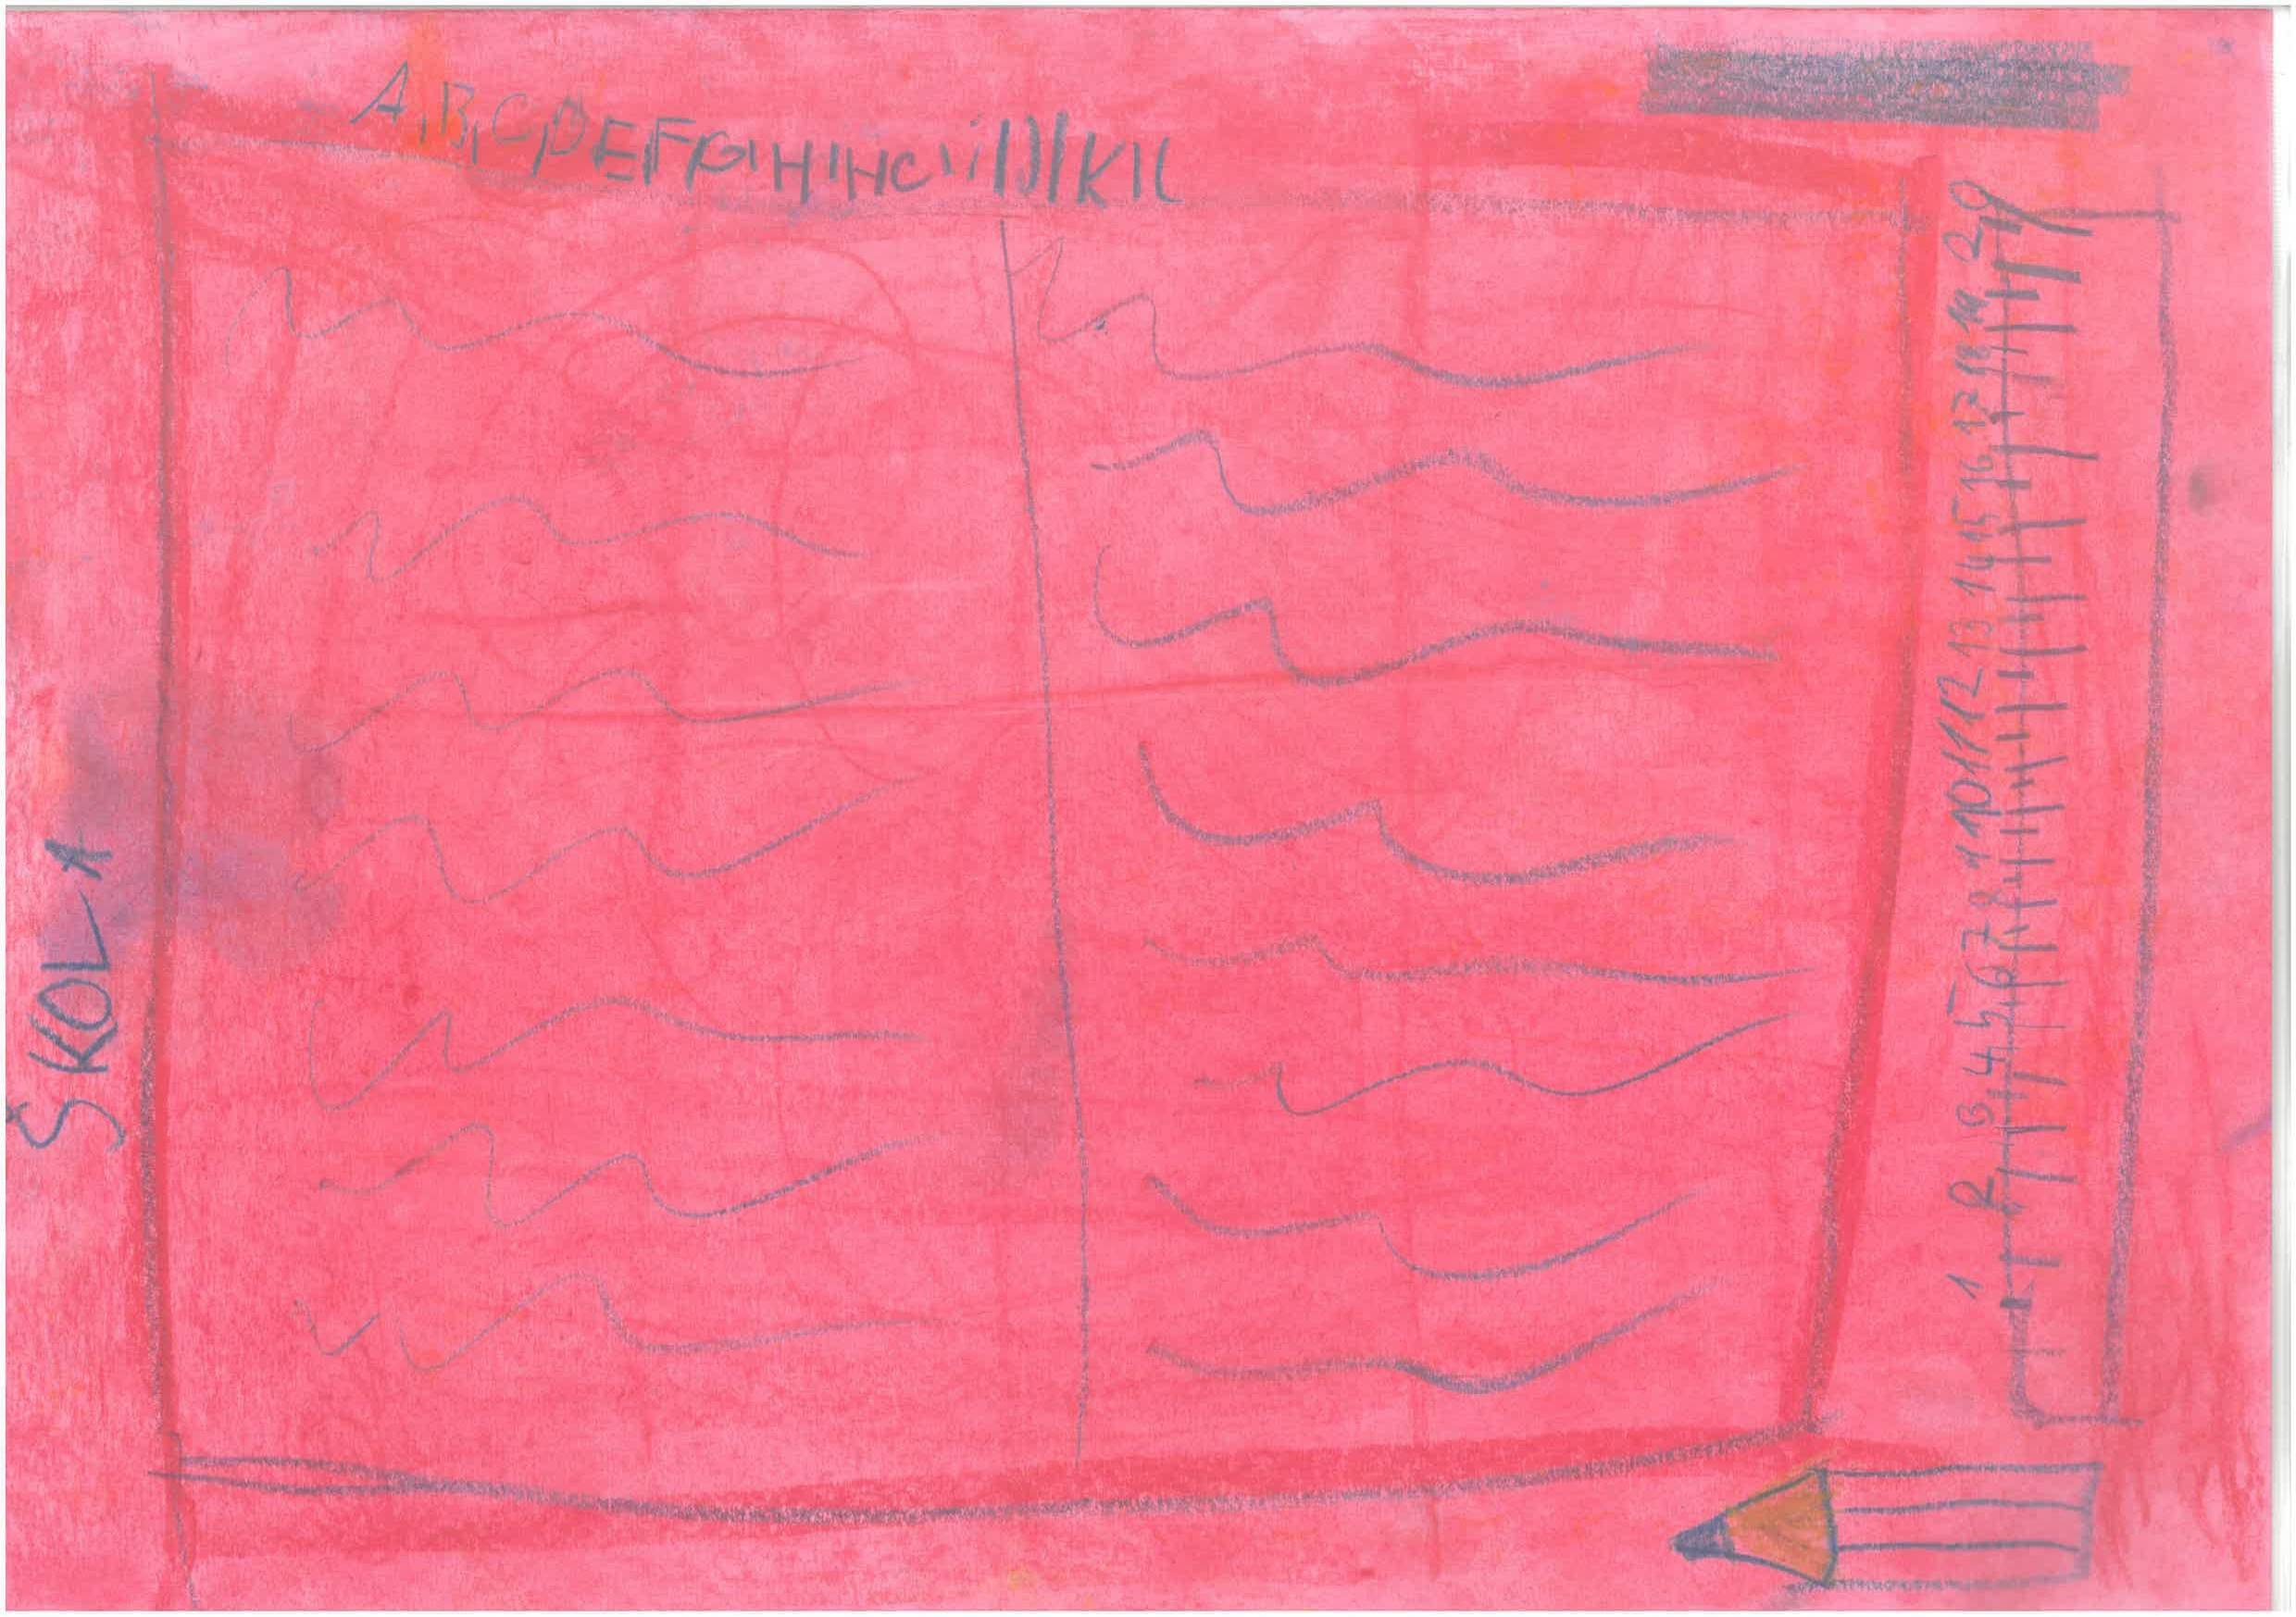 A,B,C,D,E,F,G,H,HC,i,J,K,L
ŠKOLA
1 2 3 4 5 6 7 8 9 10 11 12 13 14 15 16 17 18 19 20